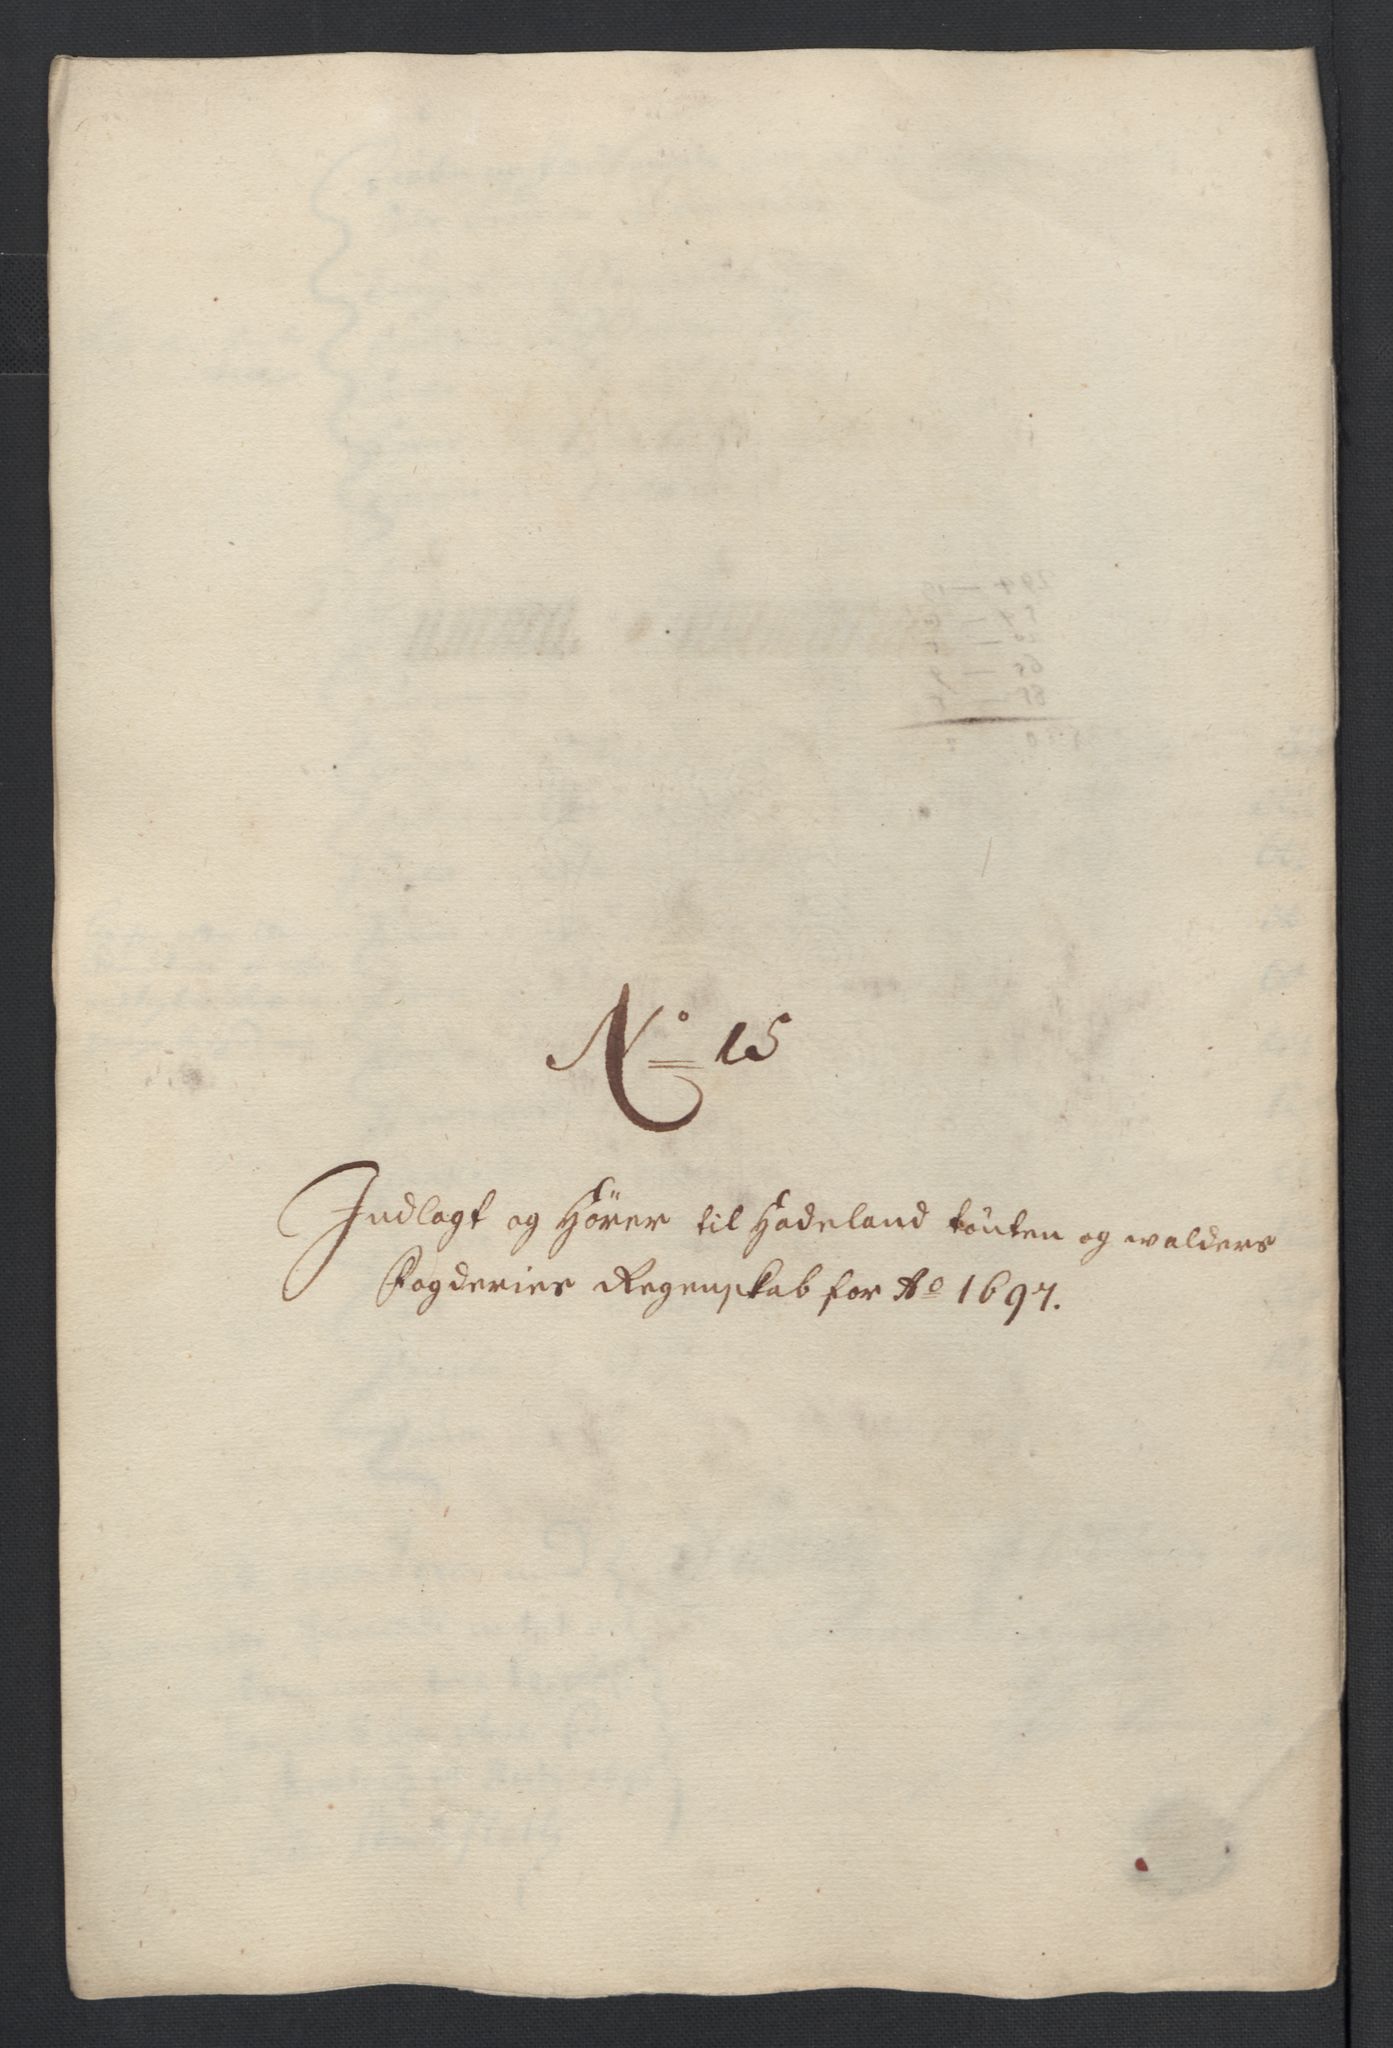 No 15
Indlagt og Hörer til Hadeland tönten og walders
Fogderies Regenskab for Ao 1697.